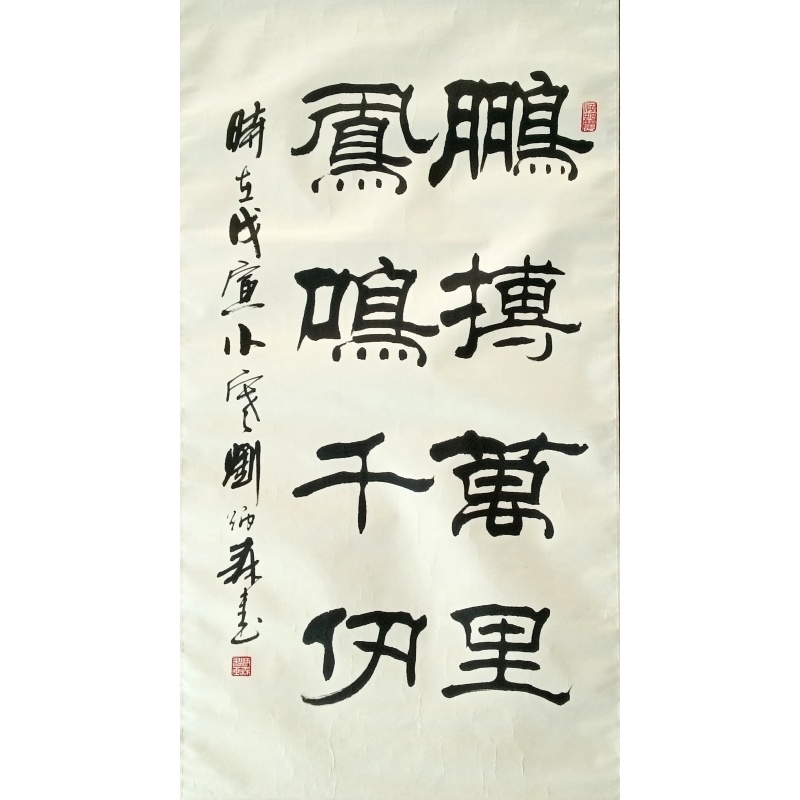 鵬搏萬里
鳳鳴千仞
時在戊寅小寒劉炳森書